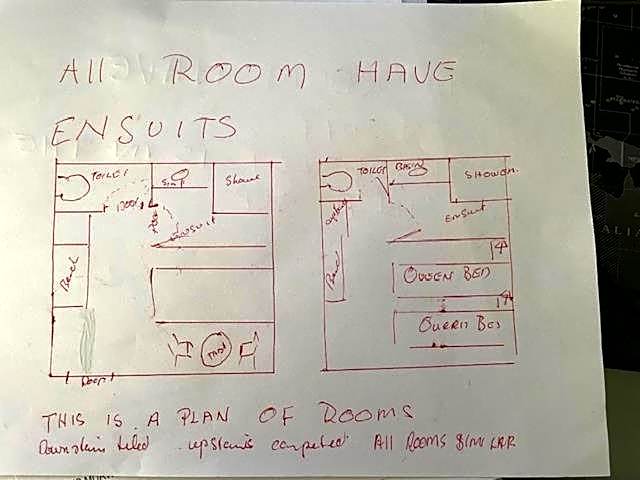 All ROOM HAVE
ENSUITS
TOILET
Sink
Showe
Door
ENSUIT
Bench
Door
TOILET
BASIN
SHOWER
ENSUIT
Bench
QUEEN BED
QUEEN BED
THIS IS A PLAN OF ROOMS
Downstairs tiled upstairs carpeted All ROOMS SIMILAR